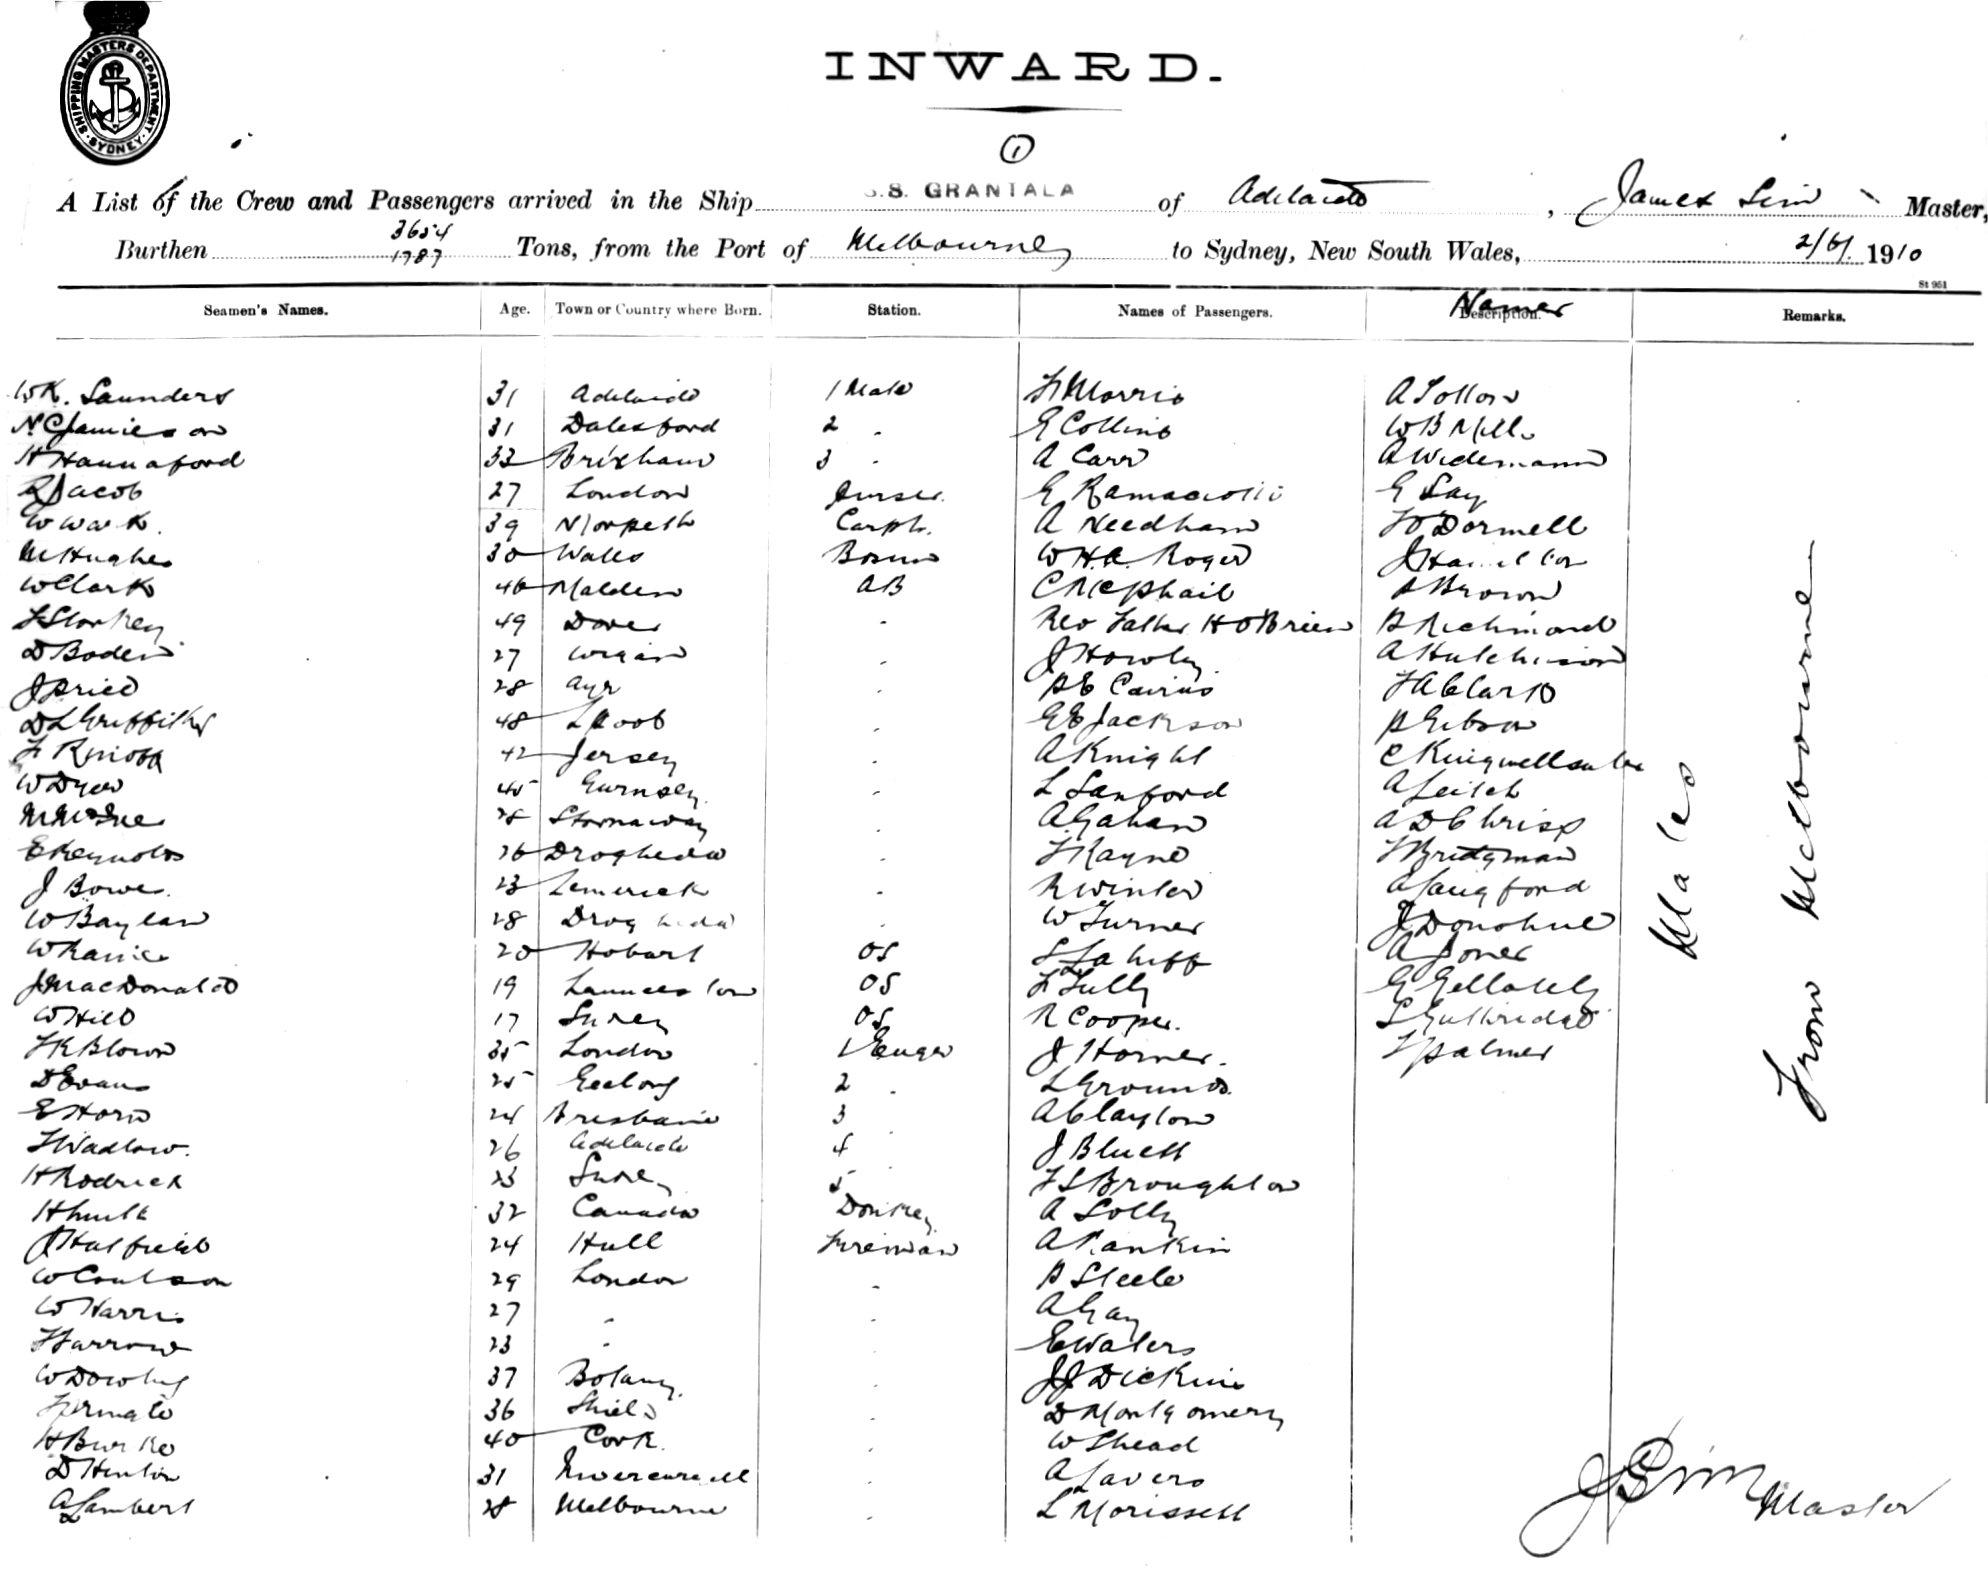 SHIPPING MASTERS DEPARTMENT · SYDNEY ·
INWARD.
1
A List of the Crew and Passengers arrived in the Ship S.S. GRANTALA of Adelaide, James Sim Master,
Burthen 3654 1787 Tons, from the Port of Melbourne to Sydney, New South Wales, 2/6/ 1910
St 951
Seamen's Names. Age. Town or Country where Born. Station. Names of Passengers. Description. Names Remarks.
W K. Saunders 31 Adelaide 1 Mate H Morris A Tollow
N C Jamieson 31 Dalesford 2 - E Collins W B Mills
H Hannaford 33 Brixham 3 - A Carr A Widemann
R Jacob 27 London A Carr E Ramaciotti G Say
W Wark. 39 Morpeth Carptr. A Needham Dormell
M Hughes 30 Wales Bosun W H. A. Roger J Hamilton
W Clark 46 Malden AB C McPhail A Brown
F Starkey 49 Dover - Rev Father H O'Brien B Richmond
D Boden 27 Wigan - J Howley A Hutchison
J Price 28 Ayr - B E Cairns F A Clark
D L Griffiths 48 L Pool - G E Jackson B Gibson
F Knott 42 Jersey - A Knight C Kingwell
W Dyer 45 Gurnsey - L Sanford A Leitch
M 28 Stornaway - A Gahan A D Chrisp
E Reynolds 26 Drogheda - F Kayne F Bridgman
J Bowe. 23 Limerick - R Winter A Langford
W Baylan 28 Drogheda - W Turner J Donohue
W 20 Hobart OS S Lahiff A Jones
J MacDonald 19 Launceston OS F Tully G Gellately
W Hill 17 Sydney OS R Cooper. S Guthridge
F K Blown 35 London 1 Enger J Horner. F Palmer
D Evans 25 Geelong 2 - L Grounds
E Horn 24 Brisbane 3 - A Clayton
F Wadlow. 26 Adelaide 4 J Bluett
H Rodrick 23 Sydney 5 F S Broughton
H 32 Canada Donkey A Solly
J Hatfield 24 Hull Fireman A Rankin
W Coulson 29 London - B Steele
W Harris 27 - - A Gay
F Farrow 23 - - E Waters
W Dowling 37 Botany. - J J Dickins
36 Shields - D Montgomery
H Burke 40 Cork. - W Shead
D Henton 31 Inverurell - A Lavers
A Lambert 28 Melbourne - L Morissett
Males
From Melbourne
J Sim Master